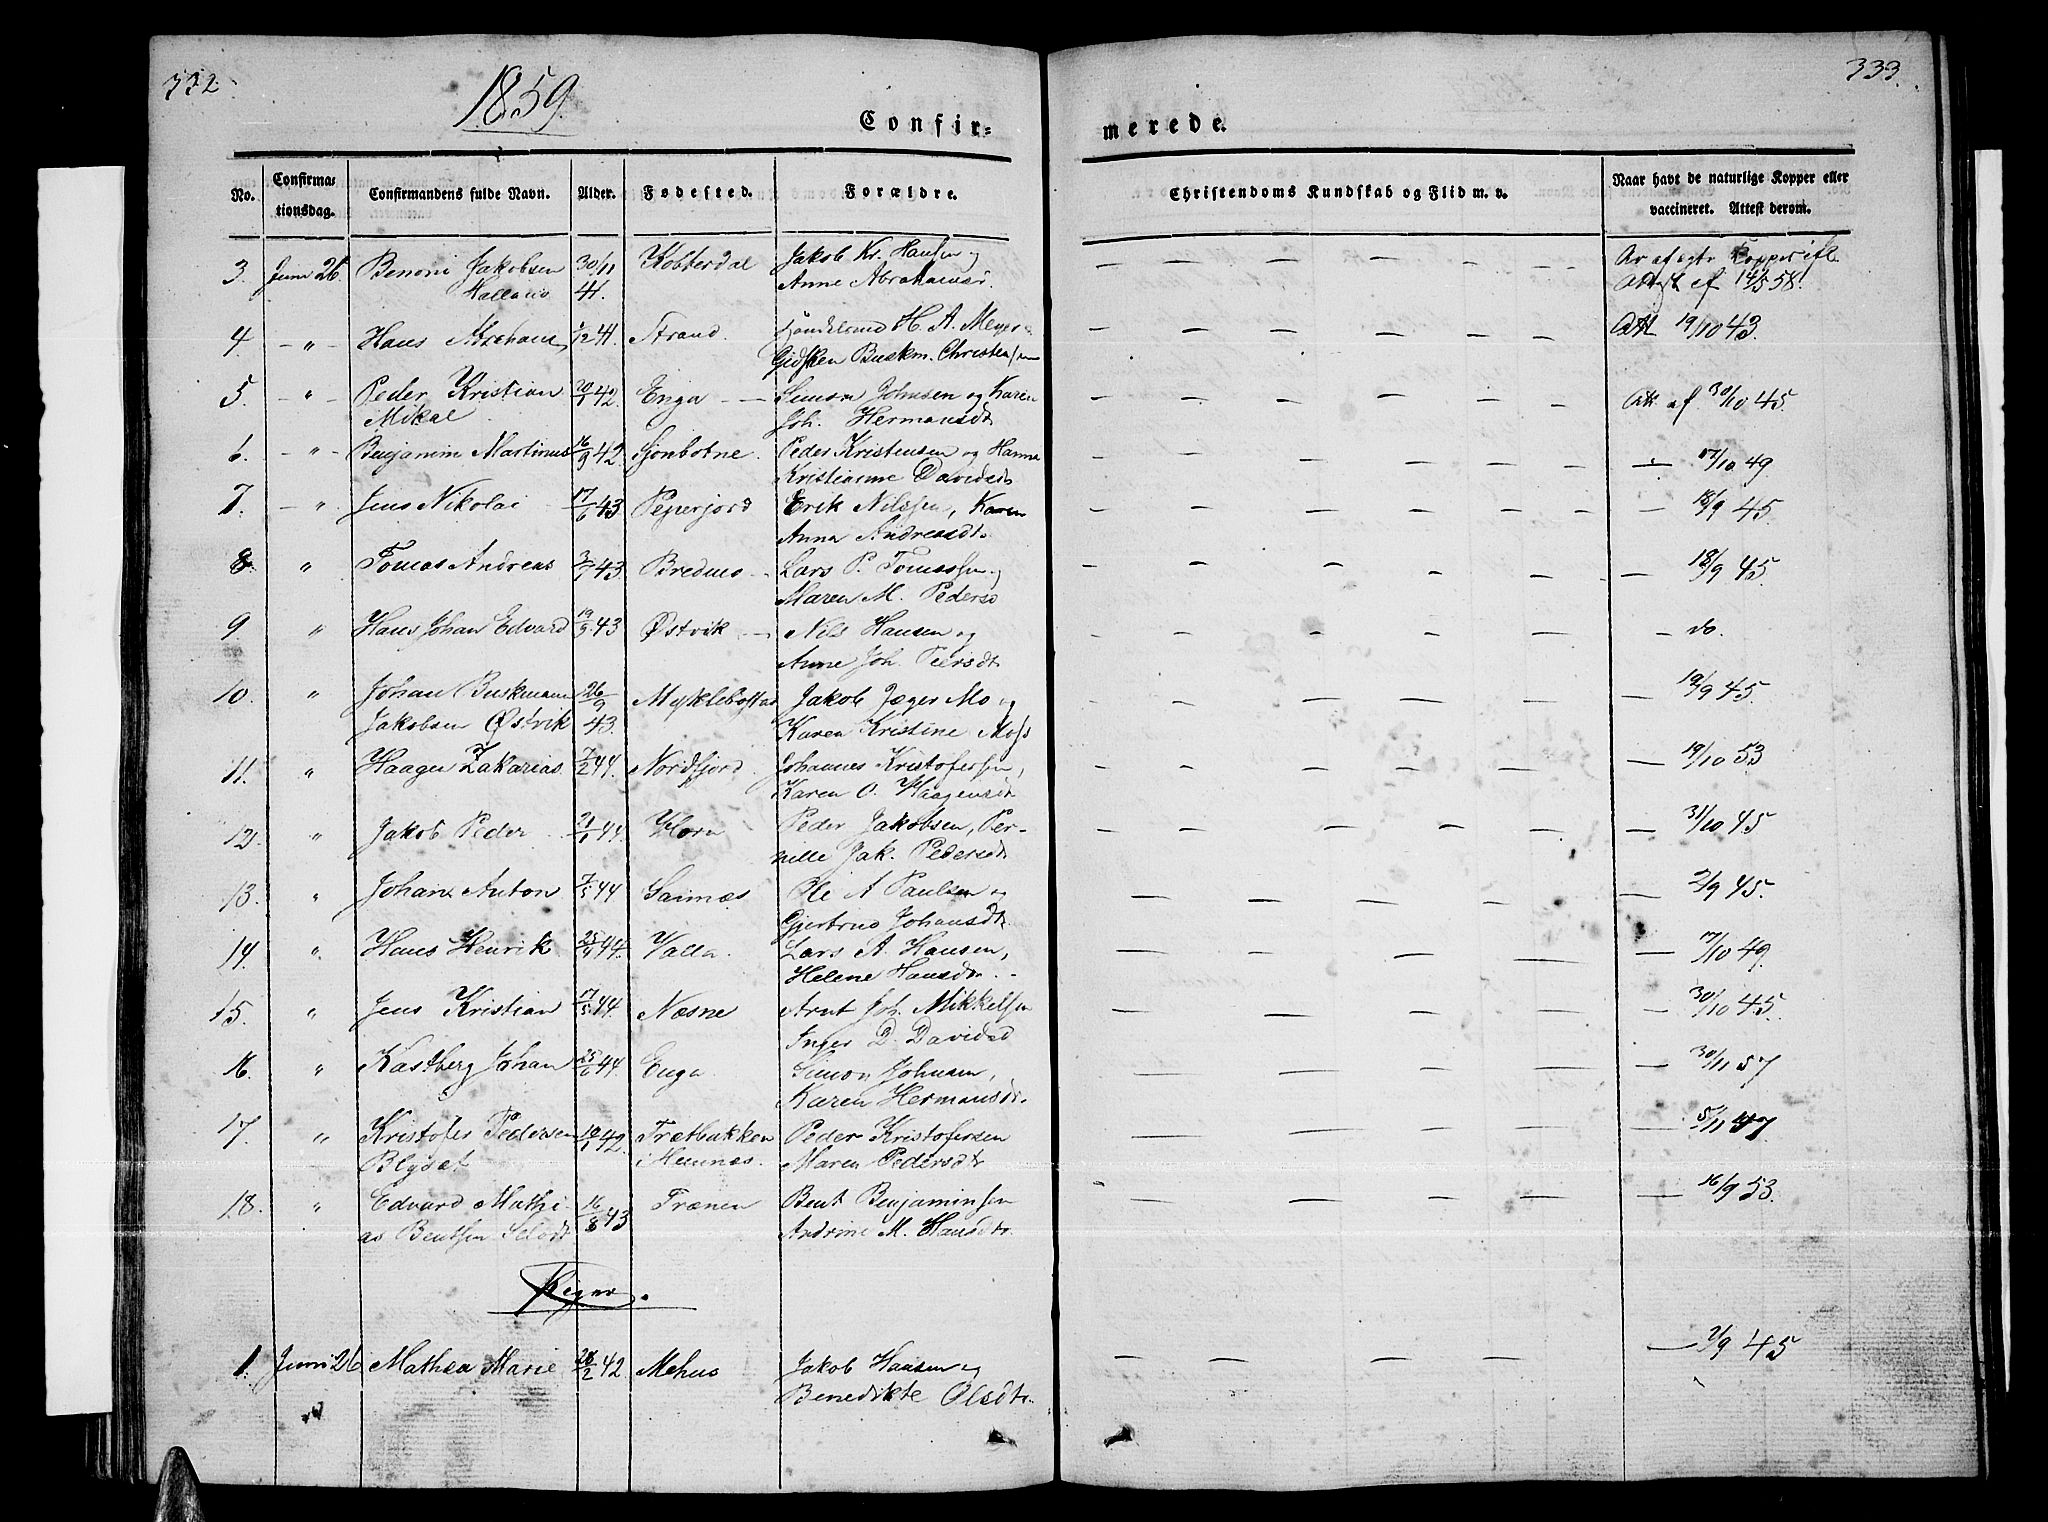 332
333
1859
Confir=
merede.
No. Confirma=tionsdag. Confirmandens fulde Navn. Alder. Fødested. Forældre. Christendoms Kundskab og Flid m. v. Naar havt de naturlige Kopper eller vaccineret. Attest derom.
3. Juni 26. Benoni Jakobsen 30/11 Kobberdal Jakob Kr. Hansen og
41. Anne Abrahamsd. 14/5 58.
4 — " — Hans 12 41 Strand. H. A. Meyer
Buskm. Christensen Att 19/10 43.
5. — " Peder Kristian 20/1 42. Enga — Simon Johnsen og Karen
Mikal Joh. Hermansdt Att. af 30/10 45.
6. — " — Benjamin Martinus 16/9 42. Sjonbotne. Peder Kristensen og Hanna — 17/10 49
Kristianne Davidsdt
7. — " Jens Nikolai 17/6 43 Erik Nilssen, Karen — 18/9 45
Anna Andreasdt.
8. " Tomas Andreas 3/7 43. Bredmo Lars P. Tomassen og — 18/9 45
Maren M. Pedersd
9 " Hans Johan Edvard 19/9 43 Østvik — Nils Hansen og — do.
Anne Joh. Peersdt
10. " Johan Buskmann 26/9 Myklebostad Jakob Jæger Mo og — 19/9 45
Jakobsen Østvik 43. Karen Kristine
11. " Haagen Zakarias. 7/2 44. Nordfjord. Johannes Kristofersen, — 19/10 53
Karen O. Haagensdt
12. " Jakob Peder 21/1 44 Horn Peder Jakobsen, Per- — 31/10 45
nille Jak. Pedersdt
13. " Johan Anton 7/5 44 Sainæs Ole A Paulsen og — 2/9 45.
Gjertrud Johansdt.
14. " Hans Henrik 25/4 44. Valla. Lars A. Hansen, — 17/10 49.
Helene Hansdt.
15. " Jens Kristian 17/5 44 Næsne Arnt Joh. Mikkelsen — 30/10 45.
Inger D. Davidsd
16. " Kastberg Johan 25/6 44. Enga Simon Johnsen, — 30/11 57
Karen Hermansdt.
17. " Kristofer Pedersen 10/1 42. Trætbakken Peder Kristofersen — 5/11 47
i Hemnæs. Maren Pedersdt
18. " Edvard Mathi- 16/8 43 Trænen Bent Benjaminsen — 16/9 53.
as Bentsen Andrine M. Hansdt.
Piger.
1. Juni 26 Mathea Marie 28/2 42 Mehus Jakob Hansen og — 2/9 45
Benedikte Olsdt.